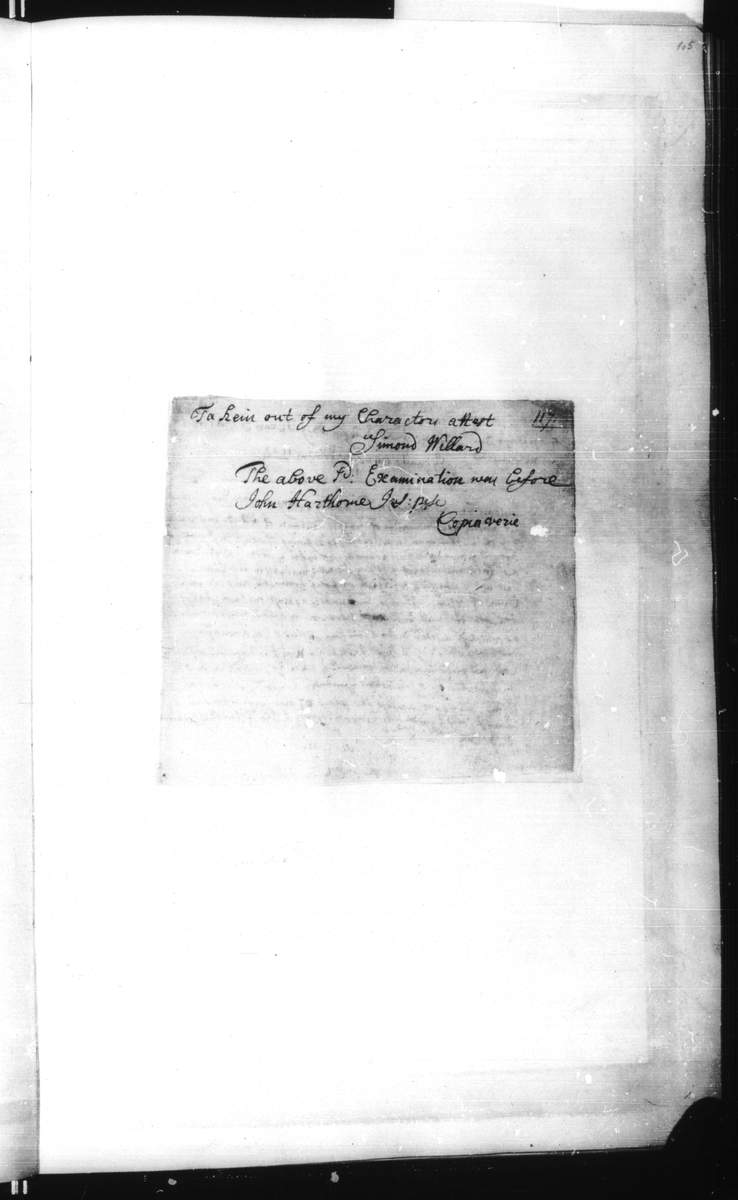 105
Takein out of my Charactors attest 117
Simond Willard
The above sd: Examination was before
John Harthorne
Copia verie